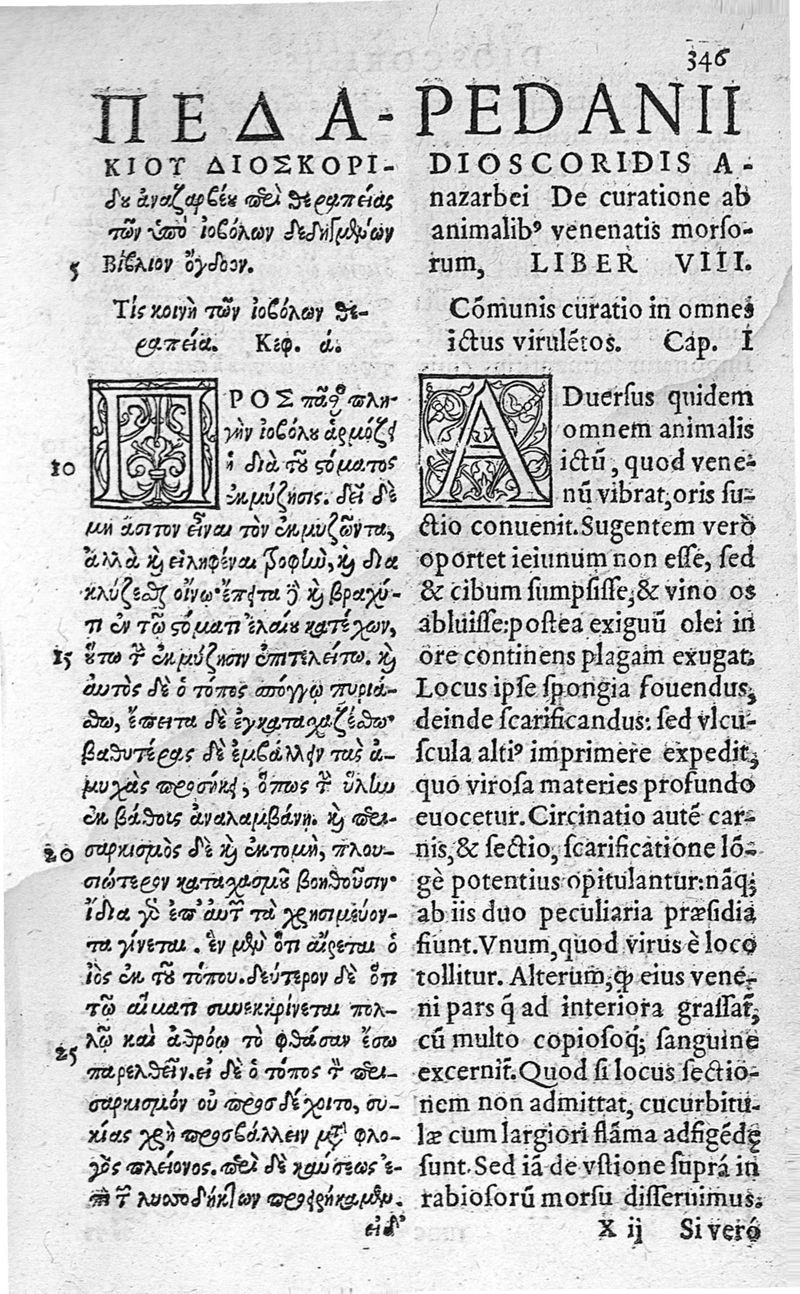 346
ΠΕΔΑ-
ΚΙΟΥ ΔΙΟΣΚΟΡΙ-
δου ἀναζαρβέου περὶ θεραπείας
τῶν ὑπὸ ἰοβόλων δεδηγμένων
5 Βιβλίον ὄγδοον.
Τίς κοινὴ τῶν ἰοβόλων θε-
ραπεία. Κεφ. ά.
ΠΡΟΣ πᾶσαν πλη-
γὴν ἰοβόλου ἁρμόζει
10 ἡ διὰ τοῦ στόματος
ἐκμύζησις. δεῖ δὲ
μὴ ἄσιτον εἶναι τὸν ἐκμυζῶντα,
ἀλλὰ καὶ εἰληφέναι ῥοφὴν, καὶ δια
κλύζεσθαι οἴνῳ· ἔπειτα δὲ καὶ βραχύ-
τι ἐν τῷ στόματι ἐλαίου κατέχων,
15 οὕτω τὴν ἐκμύζησιν ἐπιτελείτω. καὶ
αὐτὸς δὲ ὁ τόπος σπόγγῳ πυριά-
σθω, ἔπειτα δὲ ἐγκαταχαζέσθω·
βαθυτέρας δὲ ἐμβάλλειν τὰς ἀ-
μυχὰς προσήκει, ὅπως τὴν ὕλην
ἐκ βάθους ἀναλαμβάνῃ. καὶ περι-
20 σαρκισμὸς δὲ καὶ ἐκτομὴ, πλου-
σιώτερον καταχασμοῦ βοηθοῦσιν·
ἴδια γὰρ ἐπ' αὐτῶν τὰ χρησιμεύον-
τα γίνεται. ἓν μὲν ὅτι αἴρεται ὁ
ἰὸς ἐκ τοῦ τόπου. δεύτερον δὲ ὅτι
τῷ αἵματι συνεκκρίνεται πολ-
λῷ καὶ ἀθρόῳ τὸ φθάσαν ἔσω
25 παρελθεῖν. εἰ δὲ ὁ τόπος τὴν περι-
σαρκισμόν οὐ προσδέχοιτο, συ-
κίας χρὴ προσβάλλειν μετὰ φλο-
γὸς πλείονος. περὶ δὲ καύσεως ἐ-
πὶ τῶν λυσσοδήκτων προειρήκαμεν.
εἰ δ'
PEDANII
DIOSCORIDIS A-
nazarbei De curatione ab
animalibꝰ venenatis morſo-
rum, LIBER VIII.
Cõmunis curatio in omnes
ictus virulẽtos. Cap. I
ADuerſus quidem
omnem animalis
ictũ, quod vene-
nũ vibrat, oris ſu-
ctio conuenit. Sugentem verò
oportet ieiunum non eſſe, ſed
& cibum ſumpſiſſe, & vino os
abluiſſe: poſtea exiguũ olei in
ore continens plagam exugat.
Locus ipſe ſpongia fouendus,
deinde ſcarificandus: ſed vlcu-
ſcula altiꝰ imprimere expedit,
quò viroſa materies profundo
euocetur. Circinatio autẽ car-
nis, & ſectio, ſcarificatione lõ-
gè potentius opitulantur: nãq;
ab iis duo peculiaria præſidia
fiunt. Vnum, quod virus è loco
tollitur. Alterum, ꝙ eius vene-
ni pars q̃ ad interiora graſſat̃,
cũ multo copioſoq; ſanguine
excernit̃. Quod ſi locus ſectio-
nem non admittat, cucurbitu-
læ cum largiori flãma adfigẽdę
ſunt. Sed iã de vſtione ſuprà in
rabioſorũ morſu diſſeruimus.
X ij Si verò